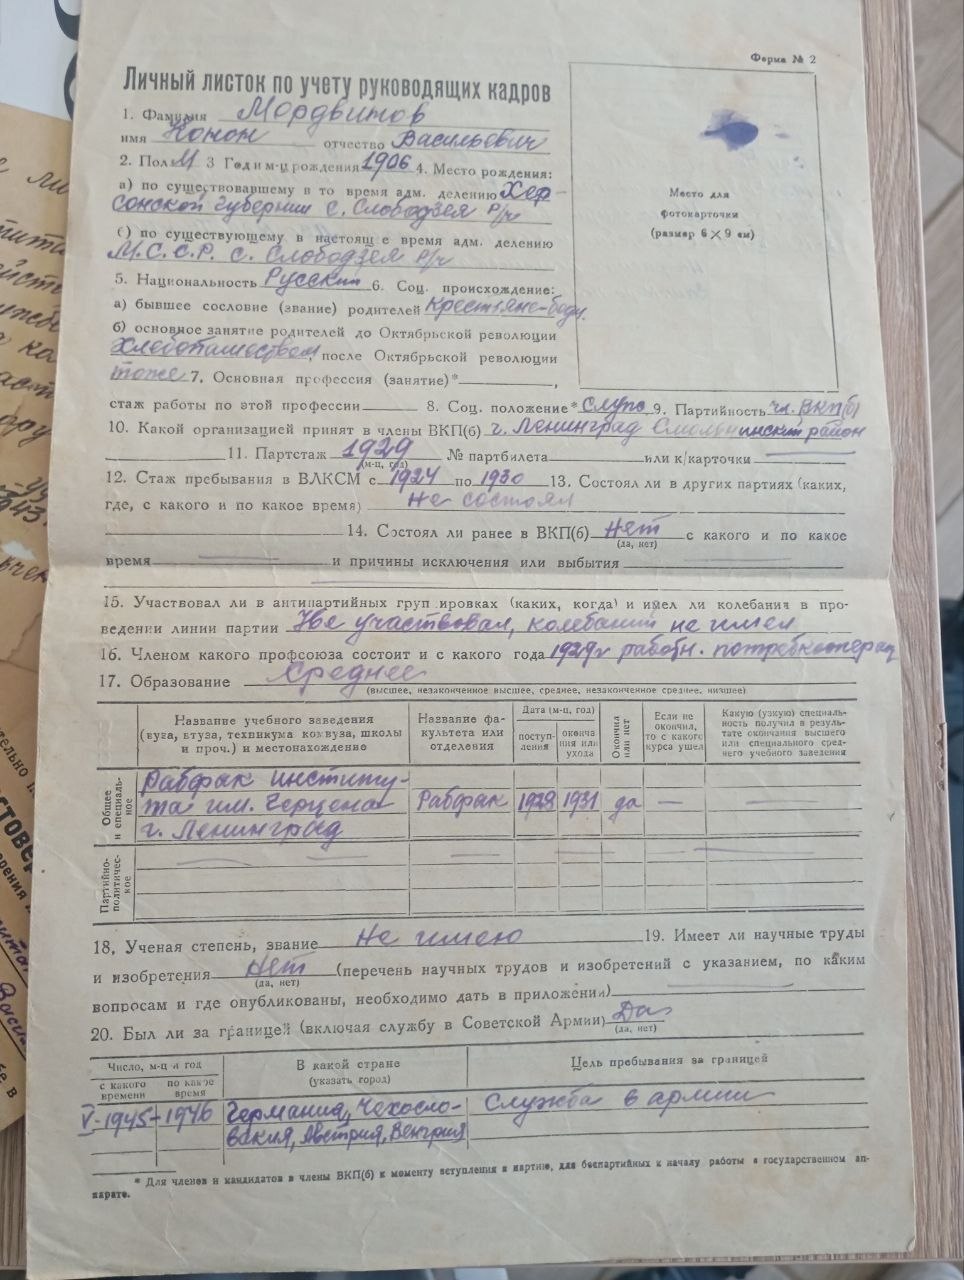 Форма № 2
Личный листок по учету руководящих кадров
1. Фамилия Мордвинов
имя Конон отчество Васильевич
2. Пол М 3 Год и м-ц рождения 1906 4. Место рождения:
а) по существовавшему в то время адм. делению Хер-
сонской губернии с. Слободзея Р/ч
б) по существующему в настоящ е время адм. делению
М.С.С.Р. с. Слободзея Р/ч
5. Национальность Русский 6. Соц. происхождение:
а) бывшее сословие (звание) родителей Крестьяне-бедн.
б) основное занятие родителей до Октябрьской революции
Хлебопашеством после Октябрьской революции
тоже 7. Основная профессия (занятие)*
стаж работы по этой профессии 8. Соц. положение* Служ 9. Партийность чл. ВКП(б)
10. Какой организацией принят в члены ВКП(б) г. Ленинград Смольнинский район
11. Партстаж 1929 № партбилета или к/карточки
(м-ц, год)
12. Стаж пребывания в ВЛКСМ с 1924 по 1930 13. Состоял ли в других партиях (каких,
где, с какого и по какое время) не состоял
14. Состоял ли ранее в ВКП(б) нет с какого и по какое
(да, нет)
время и причины исключения или выбытия
15. Участвовал ли в антипартийных груп ировках (каких, когда) и имел ли колебания в про-
ведении линии партии Не участвовал, колебаний не имел
16. Членом какого профсоюза состоит и с какого года 1929г работн. потребкоопера
17. Образование Среднее
(высшее, незаконченное высшее, среднее, незаконченное среднее, низшее)
Название учебного заведения
(вуза, втуза, техникума комвуза, школы
и проч.) и местонахождение
Название фа-
культета или
отделения
Дата (м-ц, год)
поступ-
ления
оконча
ния или
ухода
Окончил
или нет
Если не
окончил,
то с какого
курса ушел
Какую (узкую) специаль-
ность получил в резуль-
тате окончания высшего
или специального сред-
него учебного заведения
Общее
и специаль-
ное
Рабфак институ-
та им. Герцена
г. Ленинград
Рабфак 1928 1931 да —
Партийно-
политичес-
кое
18. Ученая степень, звание Не имею 19. Имеет ли научные труды
и изобретения Нет (перечень научных трудов и изобретений с указанием, по каким
(да, нет)
вопросам и где опубликованы, необходимо дать в приложении)
20. Был ли за границей (включая службу в Советской Армии) Да
(да, нет)
Число, м-ц и год
с какого
времени
по какое
время
В какой стране
(указать город)
Цель пребывания за границей
V-1945-1946 Германия, Чехосло- Служба в армии
вакия, Австрия, Венгрия
* Для членов и кандидатов в члены ВКП(б) к моменту вступления в партию, для беспартийных к началу работы в государственном ап-
парате.
Место для
фотокарточки
(размер 6 × 9 см)